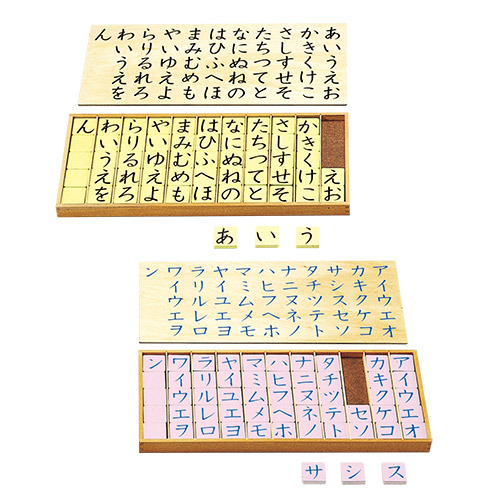 あいうえお
かきくけこ
さしすせそ
たちつてと
なにぬねの
はひふへほ
まみむめも
やいゆえよ
らりるれろ
わいうえを
ん
えお
かきくけこ
さしすせそ
たちつてと
なにぬねの
はひふへほ
まみむめも
やいゆえよ
らりるれろ
わいうえを
ん
あ い う
アイウエオ
カキクケコ
サシスセソ
タチツテト
ナニヌネノ
ハヒフヘホ
マミムメモ
ヤイユエヨ
ラリルレロ
ワイウエヲ
ン
アイウエオ
カキクケコ
セソ
タチツテト
ナニヌネノ
ハヒフヘホ
マミムメモ
ヤイユエヨ
ラリルレロ
ワイウエヲ
ン
サ シ ス